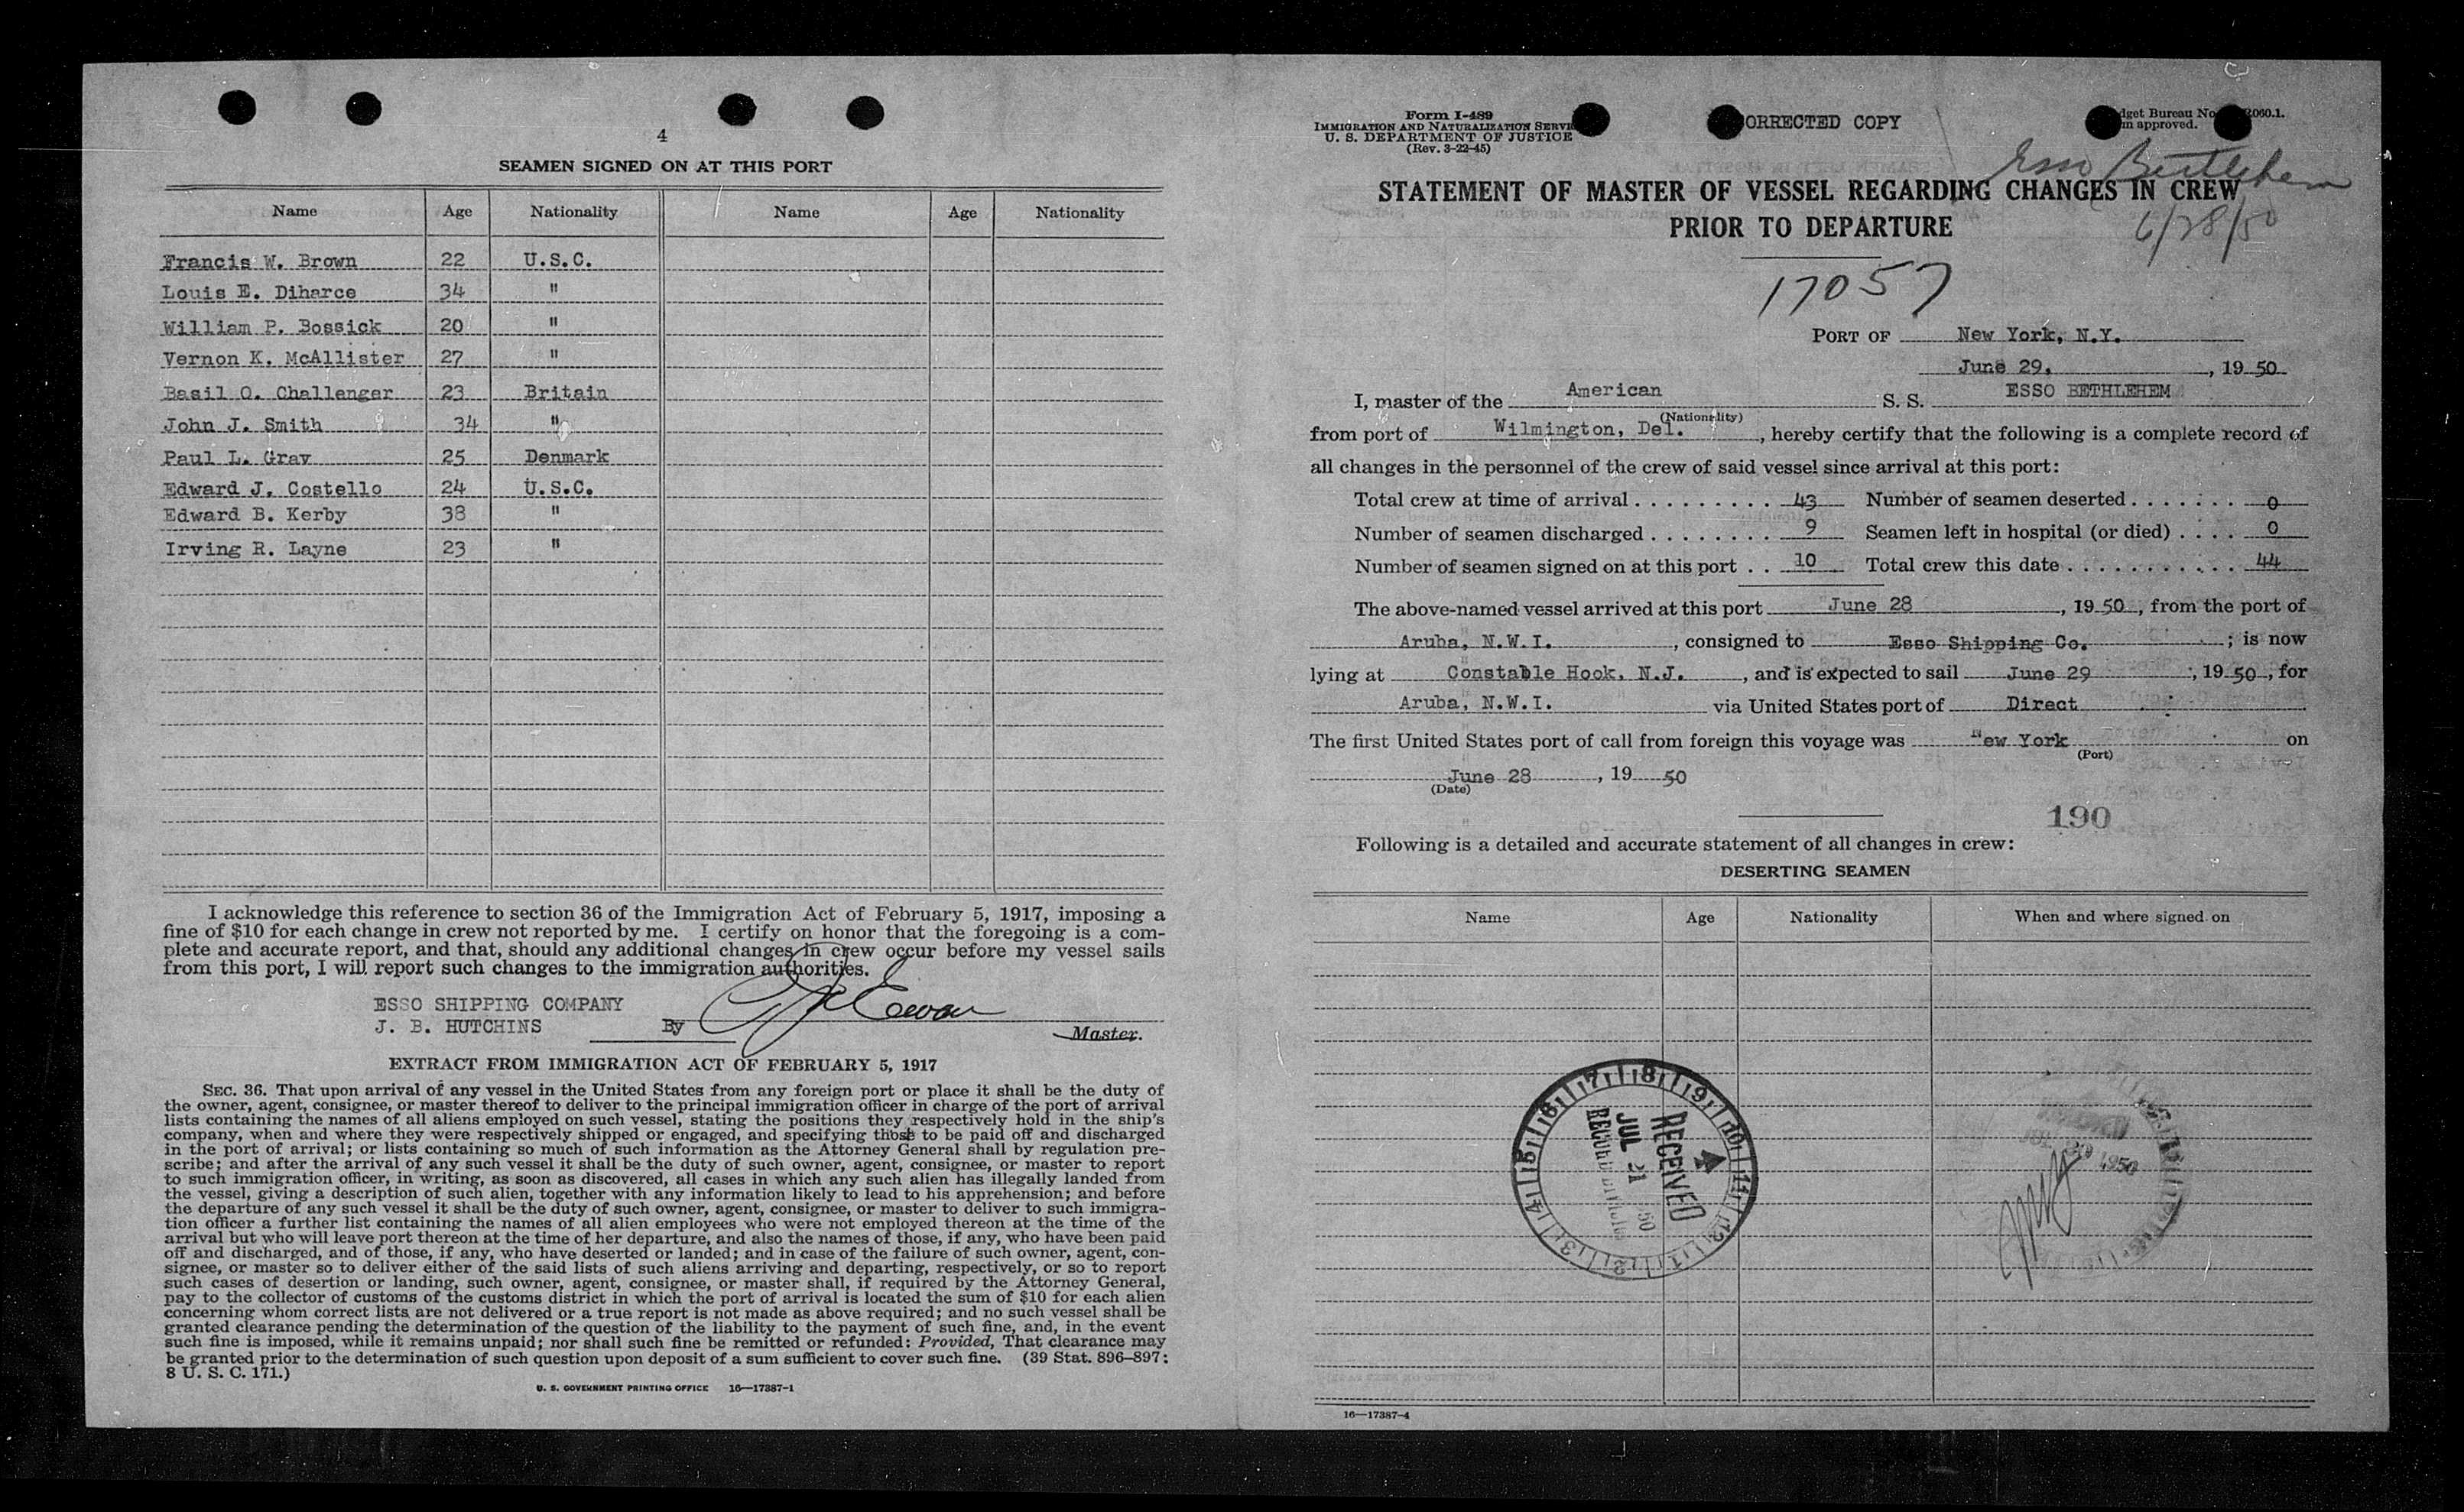 4
SEAMEN SIGNED ON AT THIS PORT
Name Age Nationality Name Age Nationality
Francis W. Brown 22 U.S.C.
Louis E. Diharce 34 "
William P. Bossick 20 "
Vernon K. McAllister 27 "
Basil O. Challenger 23 Britain
John J. Smith 34 "
Paul L. Gray 25 Denmark
Edward J. Costello 24 U.S.C.
Edward B. Kerby 38 "
Irving R. Layne 23 "
I acknowledge this reference to section 36 of the Immigration Act of February 5, 1917, imposing a
fine of $10 for each change in crew not reported by me. I certify on honor that the foregoing is a com-
plete and accurate report, and that, should any additional changes in crew occur before my vessel sails
from this port, I will report such changes to the immigration authorities.
ESSO SHIPPING COMPANY
J. B. HUTCHINS By
Master.
EXTRACT FROM IMMIGRATION ACT OF FEBRUARY 5, 1917
SEC. 36. That upon arrival of any vessel in the United States from any foreign port or place it shall be the duty of
the owner, agent, consignee, or master thereof to deliver to the principal immigration officer in charge of the port of arrival
lists containing the names of all aliens employed on such vessel, stating the positions they respectively hold in the ship's
company, when and where they were respectively shipped or engaged, and specifying those to be paid off and discharged
in the port of arrival; or lists containing so much of such information as the Attorney General shall by regulation pre-
scribe; and after the arrival of any such vessel it shall be the duty of such owner, agent, consignee, or master to report
to such immigration officer, in writing, as soon as discovered, all cases in which any such alien has illegally landed from
the vessel, giving a description of such alien, together with any information likely to lead to his apprehension; and before
the departure of any such vessel it shall be the duty of such owner, agent, consignee, or master to deliver to such immigra-
tion officer a further list containing the names of all alien employees who were not employed thereon at the time of the
arrival but who will leave port thereon at the time of her departure, and also the names of those, if any, who have been paid
off and discharged, and of those, if any, who have deserted or landed; and in case of the failure of such owner, agent, con-
signee, or master so to deliver either of the said lists of such aliens arriving and departing, respectively, or so to report
such cases of desertion or landing, such owner, agent, consignee, or master shall, if required by the Attorney General,
pay to the collector of customs of the customs district in which the port of arrival is located the sum of $10 for each alien
concerning whom correct lists are not delivered or a true report is not made as above required; and no such vessel shall be
granted clearance pending the determination of the question of the liability to the payment of such fine, and, in the event
such fine is imposed, while it remains unpaid; nor shall such fine be remitted or refunded: Provided, That clearance may
be granted prior to the determination of such question upon deposit of a sum sufficient to cover such fine. (39 Stat. 896–897;
8 U. S. C. 171.)
U. S. GOVERNMENT PRINTING OFFICE 16—17387-1
Form I-489
IMMIGRATION AND NATURALIZATION SERVI
U. S. DEPARTMENT OF JUSTICE
(Rev. 3-22-45)
ORRECTED COPY
dget Bureau No. 060.1.
m approved.
Esso Bethlehem
6/28/50
STATEMENT OF MASTER OF VESSEL REGARDING CHANGES IN CREW
PRIOR TO DEPARTURE
17057
PORT OF New York, N.Y.
June 29, , 19 50
I, master of the American S. S. ESSO BETHLEHEM
(Nationality)
from port of Wilmington, Del. , hereby certify that the following is a complete record of
all changes in the personnel of the crew of said vessel since arrival at this port:
Total crew at time of arrival . . . . . . . . . . 43 Number of seamen deserted . . . . . . . 0
Number of seamen discharged . . . . . . . . 9 Seamen left in hospital (or died) . . . . 0
Number of seamen signed on at this port . . 10 Total crew this date . . . . . . . . . . . 44
The above-named vessel arrived at this port June 28 , 19 50 , from the port of
Aruba, N.W.I. , consigned to Esso Shipping Co. ; is now
lying at Constable Hook, N.J. , and is expected to sail June 29 , 19 50 , for
Aruba, N.W.I. via United States port of Direct
The first United States port of call from foreign this voyage was New York on
(Port)
June 28 , 19 50
(Date)
190
Following is a detailed and accurate statement of all changes in crew:
DESERTING SEAMEN
Name Age Nationality When and where signed on
RECEIVED
JUL 21 50
RECORD DIVISION
1 2 3 4 5 6 7 8 9 10 11 12
1950
16—17387-4